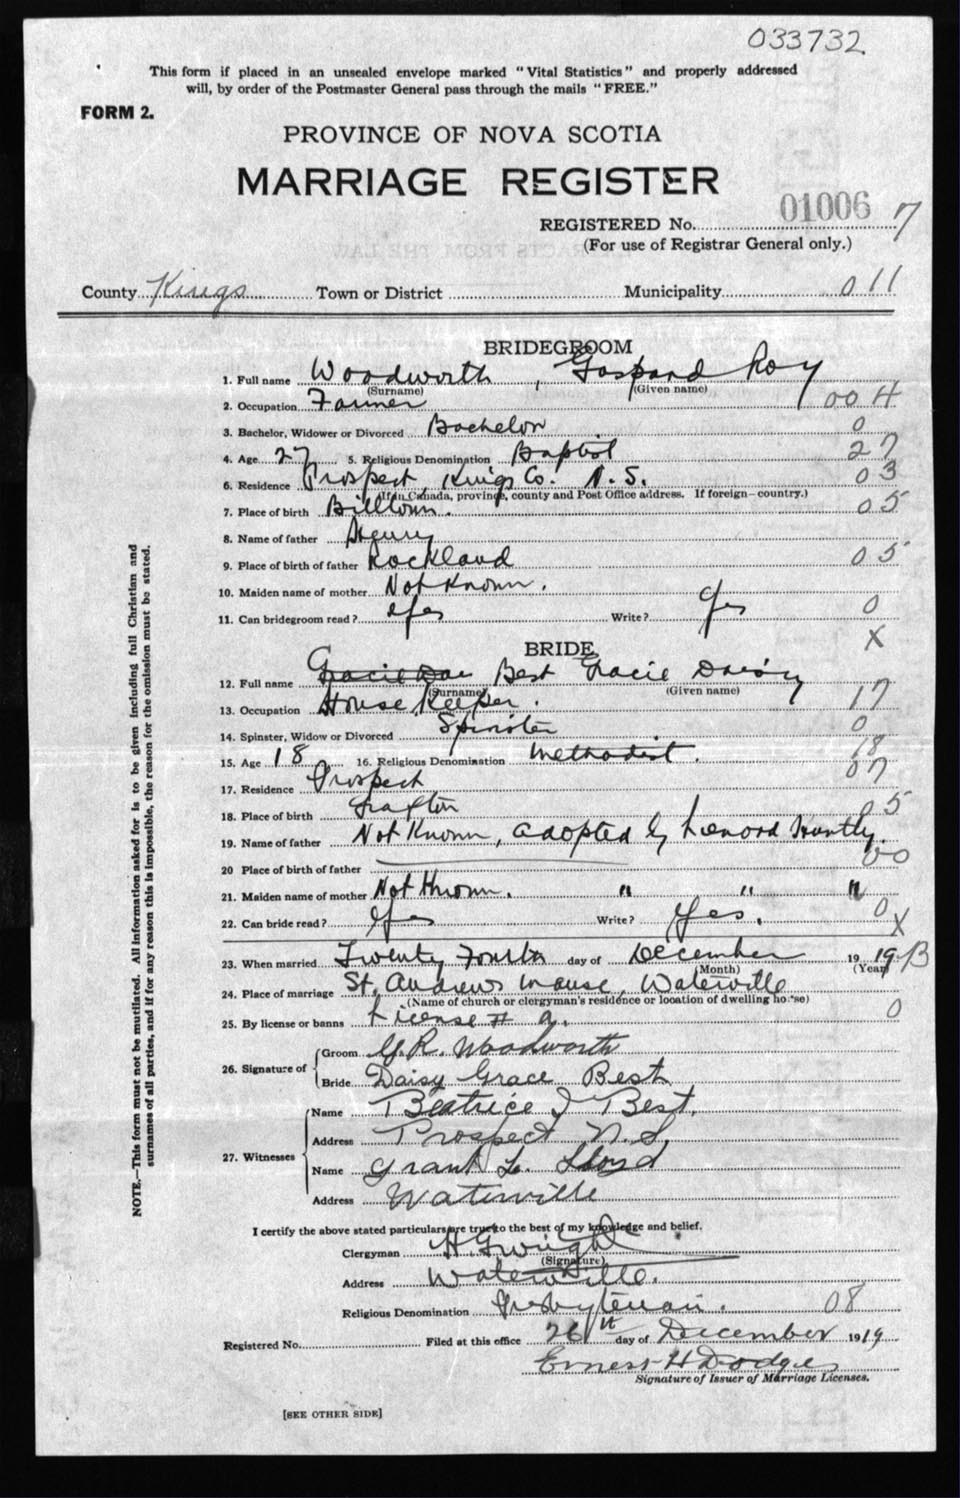 033732
This form if placed in an unsealed envelope marked "Vital Statistics" and properly addressed
will, by order of the Postmaster General pass through the mails "FREE."
FORM 2.
PROVINCE OF NOVA SCOTIA
MARRIAGE REGISTER
REGISTERED No. 01006 7
(For use of Registrar General only.)
County Kings Town or District Municipality 011
BRIDEGROOM
1. Full name Woodworth, Gaspard Roy
(Surname) (Given name)
2. Occupation Farmer 004
3. Bachelor, Widower or Divorced Bachelor 0
4. Age 27 5. Religious Denomination Baptist 27
6. Residence Prospect, Kings Co. N.S. 03
(If in Canada, province, county and Post Office address. If foreign—country.)
7. Place of birth Billtown. 05
8. Name of father Henry
9. Place of birth of father Rockland 05
10. Maiden name of mother Not Known.
11. Can bridegroom read? Yes Write? Yes 0
X
BRIDE
12. Full name Gracie Best Gracie Daisy
(Surname) (Given name)
13. Occupation House Keeper. 17
14. Spinster, Widow or Divorced Spinster 0
15. Age 18 16. Religious Denomination Methodist. 18
17. Residence Prospect 07
18. Place of birth Grafton 05
19. Name of father Not Known, adopted by Lenord Huntly.
20 Place of birth of father 00
21. Maiden name of mother Not Known. " " "
22. Can bride read? Yes Write? Yes. 0 X
23. When married Twenty Fourth day of December 19 19 B
(Month) (Year)
24. Place of marriage St. Andrews Manse, Waterville
(Name of church or clergyman's residence or location of dwelling house)
25. By license or banns License # a. 0
26. Signature of
Groom G.R. Woodworth
Bride Daisy Grace Best
27. Witnesses
Name Beatrice J Best.
Address Prospect N.S.
Name Grant L. Lloyd
Address Waterville
I certify the above stated particulars are true to the best of my knowledge and belief.
Clergyman H G Wright
(Signature)
Address Waterville.
Religious Denomination Presbyterian. 08
Registered No. Filed at this office 26th day of December 1919
Ernest H Dodge
Signature of Issuer of Marriage Licenses.
[SEE OTHER SIDE]
NOTE.—This form must not be mutilated. All information asked for is to be given including full Christian and
surnames of all parties, and if for any reason this is impossible, the reason for the omission must be stated.